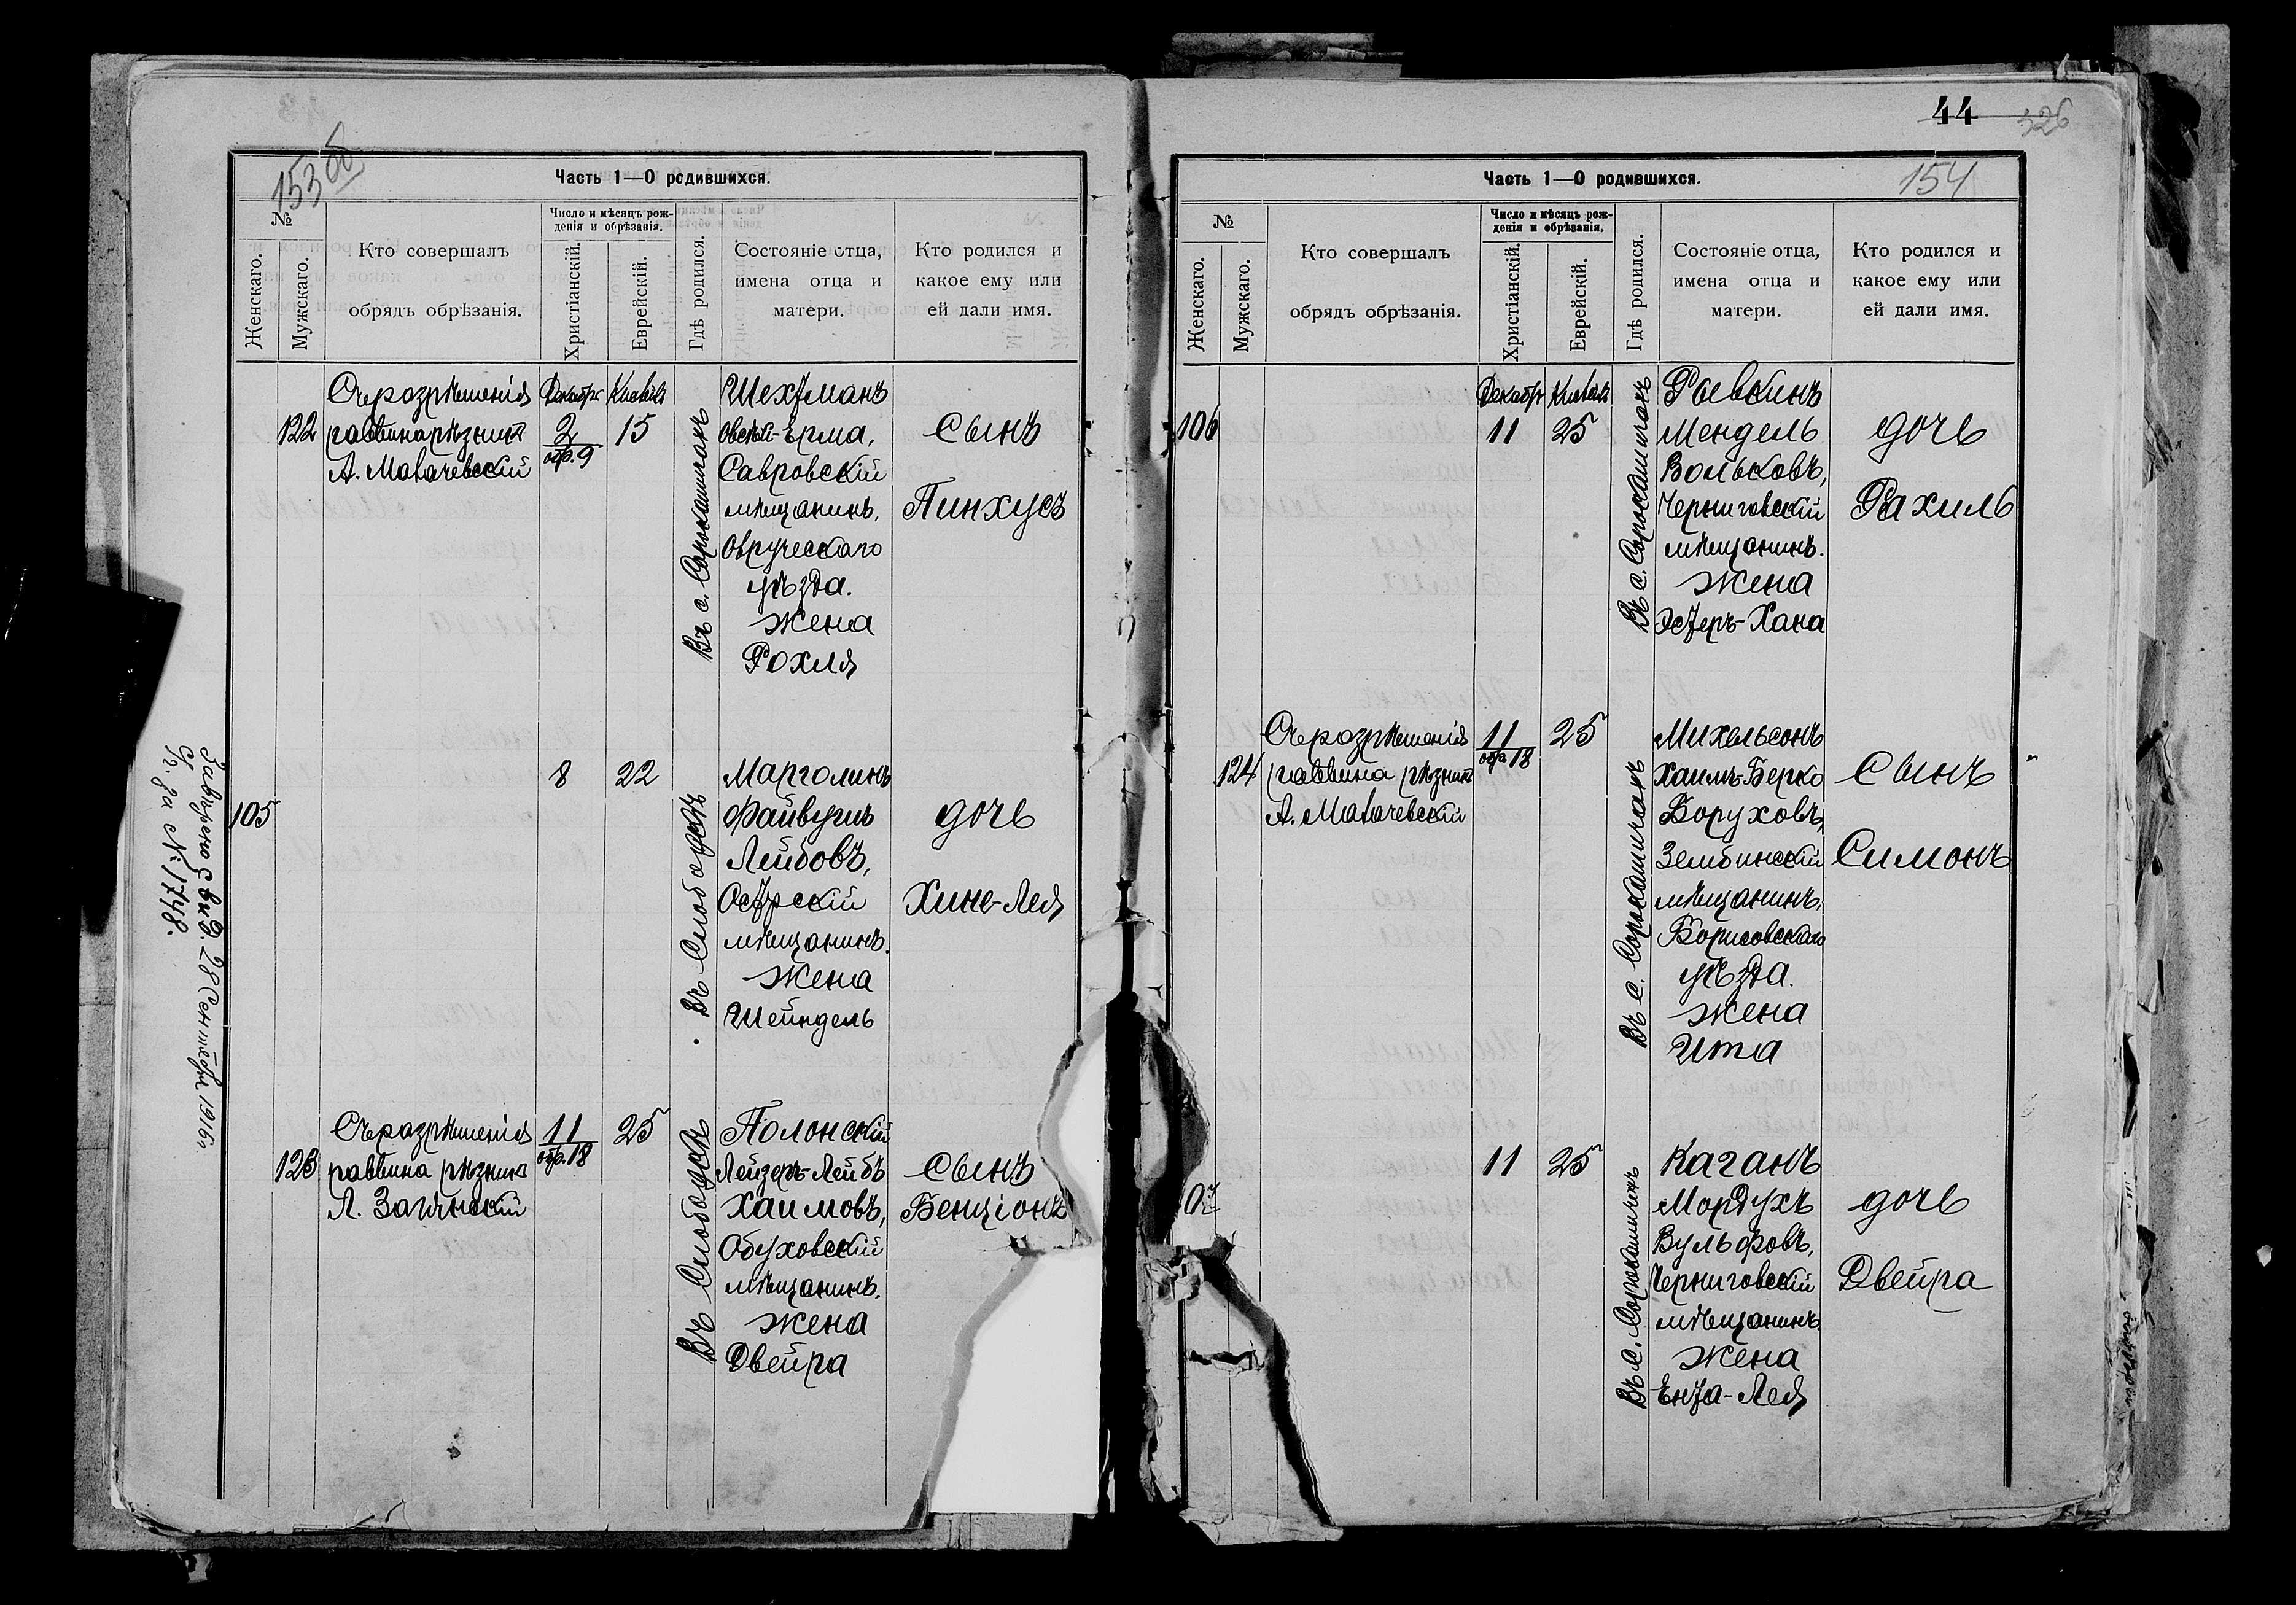 153 об
Часть 1—О родившихся.
№
Женскаго.
Мужскаго.
Кто совершалъ
обрядъ обрѣзанія.
Число и мѣсяцъ рож-
денія и обрѣзанія.
Христіанскій.
Еврейскій.
Гдѣ родился.
Состояніе отца,
имена отца и
матери.
Кто родился и
какое ему или
ей дали имя.
122
Съ разрѣшенія
раввина рѣзникъ
А. Макачевскій
Декабрь
2
обр. 9
Кислевъ
15
Въ с. Сорокашичахъ
Шехтманъ
Овсѣй-Ерма,
Савровскій
мѣщанинъ,
Овруческаго
уѣзда.
жена
Рохля
Сынъ
Пинхусъ
105
8
22
Въ Слободкѣ
Марголинъ
Файвушъ
Лейбовъ,
Остерскій
мѣщанинъ.
жена
Шейндель
дочь
Хине-Лея
123
Съ разрѣшенія
раввина рѣзникъ
Л.
11
обр. 18
25
Въ Слободкѣ
Полонскій
Лейзеръ-Лейбъ
Хаимовъ,
Обуховскій
мѣщанинъ.
жена
Двейра
Сынъ
Бенціонъ
28 Сентября 1916 г.
за № 1748.
44
326
154
Часть 1—О родившихся.
№
Женскаго.
Мужскаго.
Кто совершалъ
обрядъ обрѣзанія.
Число и мѣсяцъ рож-
денія и обрѣзанія.
Христіанскій.
Еврейскій.
Гдѣ родился.
Состояніе отца,
имена отца и
матери.
Кто родился и
какое ему или
ей дали имя.
106
Декабрь
11
Кислевъ
25
Въ с. Сорокашичахъ
Рывкинъ
Мендель
Вольковъ,
Черниговскій
мѣщанинъ.
жена
Эстеръ-Хана
дочь
Рахиль
124
Съ разрѣшенія
раввина рѣзникъ
А. Макачевскій
11
обр. 18
25
Въ с. Сорокашичахъ
Михельсонъ
Хаимъ-Берко
Боруховъ,
Зембинскій
мѣщанинъ,
Борисовскаго
уѣзда.
жена
Ита
Сынъ
Симонъ
07
11
25
Въ с. Сорокашичахъ
Каганъ
Мордухъ
Вульфовъ,
Черниговскій
мѣщанинъ.
жена
Ента-Лея
дочь
Двейра